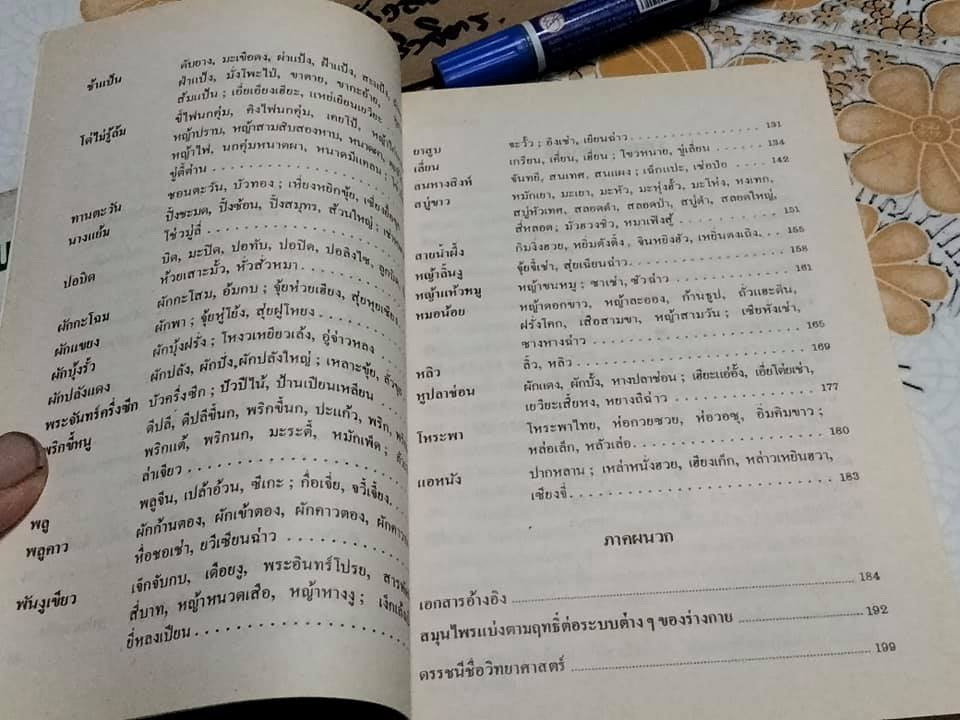 ดับยาง, มะเขือดง, ฝ่าแป้ง, ฝ้าแป้ง, สะแป้ง,
ช้าแป้น ฝ้าแป้ง, มั่งโพะไป่, ขาตาย, ขากะอ้าย,
ส้มแป้น ; เอี่ยเอียงเฮียะ, แหย่เยียนเยวียะ
โด่ไม่รู้ล้ม ขี้ไฟนกคุ่ม, คิงไฟนกคุ่ม, เคยโป้,
หญ้าปราบ, หญ้าสามสิบสองหาบ, หนาดผา,
หญ้าไฟ, นกคุ่มหนาดผา, หนาดมีแคลน ;
ขู่ตี่ต่าน
ทานตะวัน ชอนตะวัน, บัวทอง ; เหี่ยงหยิกขุ้ย,
นางแย้ม ปิ้งชะมด, ปิ้งซ้อน, ปิ้งสมุทร, ส้วนใหญ่ ;
โช่วมู่ลี่
ปอบิด บิด, มะปิด, ปอทับ, ปอปิด, ปอลิงไซ,
ห้วยเสาะมั้ว, หั่วสั่วหมา
ผักกะโฉม ผักกะโสม, อ้มกบ ; จุ้ยห่วยเฮียง, สุ่ยหุยเซียง
ผักแขยง ผักพา ; จุ้ยหู่โย้ง, สุ่ยฝูโหยง
ผักบุ้งรั้ว ผักบุ้งฝรั่ง ; โหงวเหยียวเล้ง, อู่จ่าวหลง
ผักปลังแดง ผักปลัง, ผักปั่ง, ผักปลังใหญ่ ; เหลาะขุ้ย,
พระจันทร์ครึ่งซีก บัวครึ่งซีก ; ปัวปีไน้, ป้านเปียนเหลียน
พริกขี้หนู ดีปลี, ดีปลีขี้นก, พริกขี้นก, ปะแก้ว, พริก,
พริกแต้, พริกนก, มะระตี้, หมักเพ็ด ;
ล่าเจียว
พลู พลูจีน, เปล้าอ้วน, ซีเกะ ; กื่อเจี่ย, จวี้เจี้ยง
พลูคาว ผักก้านตอง, ผักเข้าตอง, ผักคาวตอง,
หื่อชอเช่า, ยวีเซียนฉ่าว
พันงูเขียว เจ๊กจับกบ, เดือยงู, พระอินทร์โปรย,
สี่บาท, หญ้าหนวดเสือ, หญ้าหางงู ;
ยี่หลงเปียน
ยาสูบ ชะรั้ว ; อิงเช่า, เยียนฉ่าว 131
เลี่ยน เกรียน, เคี่ยน, เฮี่ยน ; โขวหนาย, ขู่เลี่ยน 134
สนหางสิงห์ จันทยี, สนเทศ, สนแผง ; เฉ็กแปะ, เช่อป๋อ 142
สบู่ขาว หมักเยา, มะเยา, มะหัว, มะหุ่งฮั้ว, มะโห่ง, หงเทก,
สบู่หัวเทศ, สลอดดำ, สลอดป่า, สบู่ดำ, สลอดใหญ่,
สี่หลอด ; มั่วฮวงซิ่ว, หมาเฟิงสู้ 151
สายน้ำผึ้ง กิมงิ้งฮวย, หยิ่มตังติ้ง, จินหยิงฮัว, เหยิ่นตงเถิง 155
หญ้าลิ้นงู จุ้ยจี้เช่า, สุ่ยเฉียนฉ่าว 158
หญ้าแห้วหมู หญ้าขนหมู ; ซาเช่า, ซัวฉ่าว 161
หมอน้อย หญ้าดอกขาว, หญ้าละออง, ก้านธูป, ถั่วแฮะดิน,
ฝรั่งโคก, เสือสามขา, หญ้าสามวัน ; เซียหังเช่า,
ซางหางฉ่าว 165
หลิว ลิ้ว, หลิว 169
หูปลาช่อน ผักแดง, ผักบั้ง, หางปลาช่อน ; เฮียะแย่อั้ง, เอี่ยโต่ยเช่า,
เยวียะเสี้ยหง, หยางถีฉ่าว 177
โหระพา โหระพาไทย, ห่อกวยซวย, ห่อวอซุ, อิ่มคิมขาว ;
หล่อเล็ก, หลัวเล่อ 180
แอหนัง ปากหลาน ; เหล่าหนั่งฮวย, เฮียงเก็ก, หล่าวเหยินฮวา,
เซียงจี๋ 183
ภาคผนวก
เอกสารอ้างอิง 184
สมุนไพรแบ่งตามฤทธิ์ต่อระบบต่าง ๆ ของร่างกาย 192
ดรรชนีชื่อวิทยาศาสตร์ 199